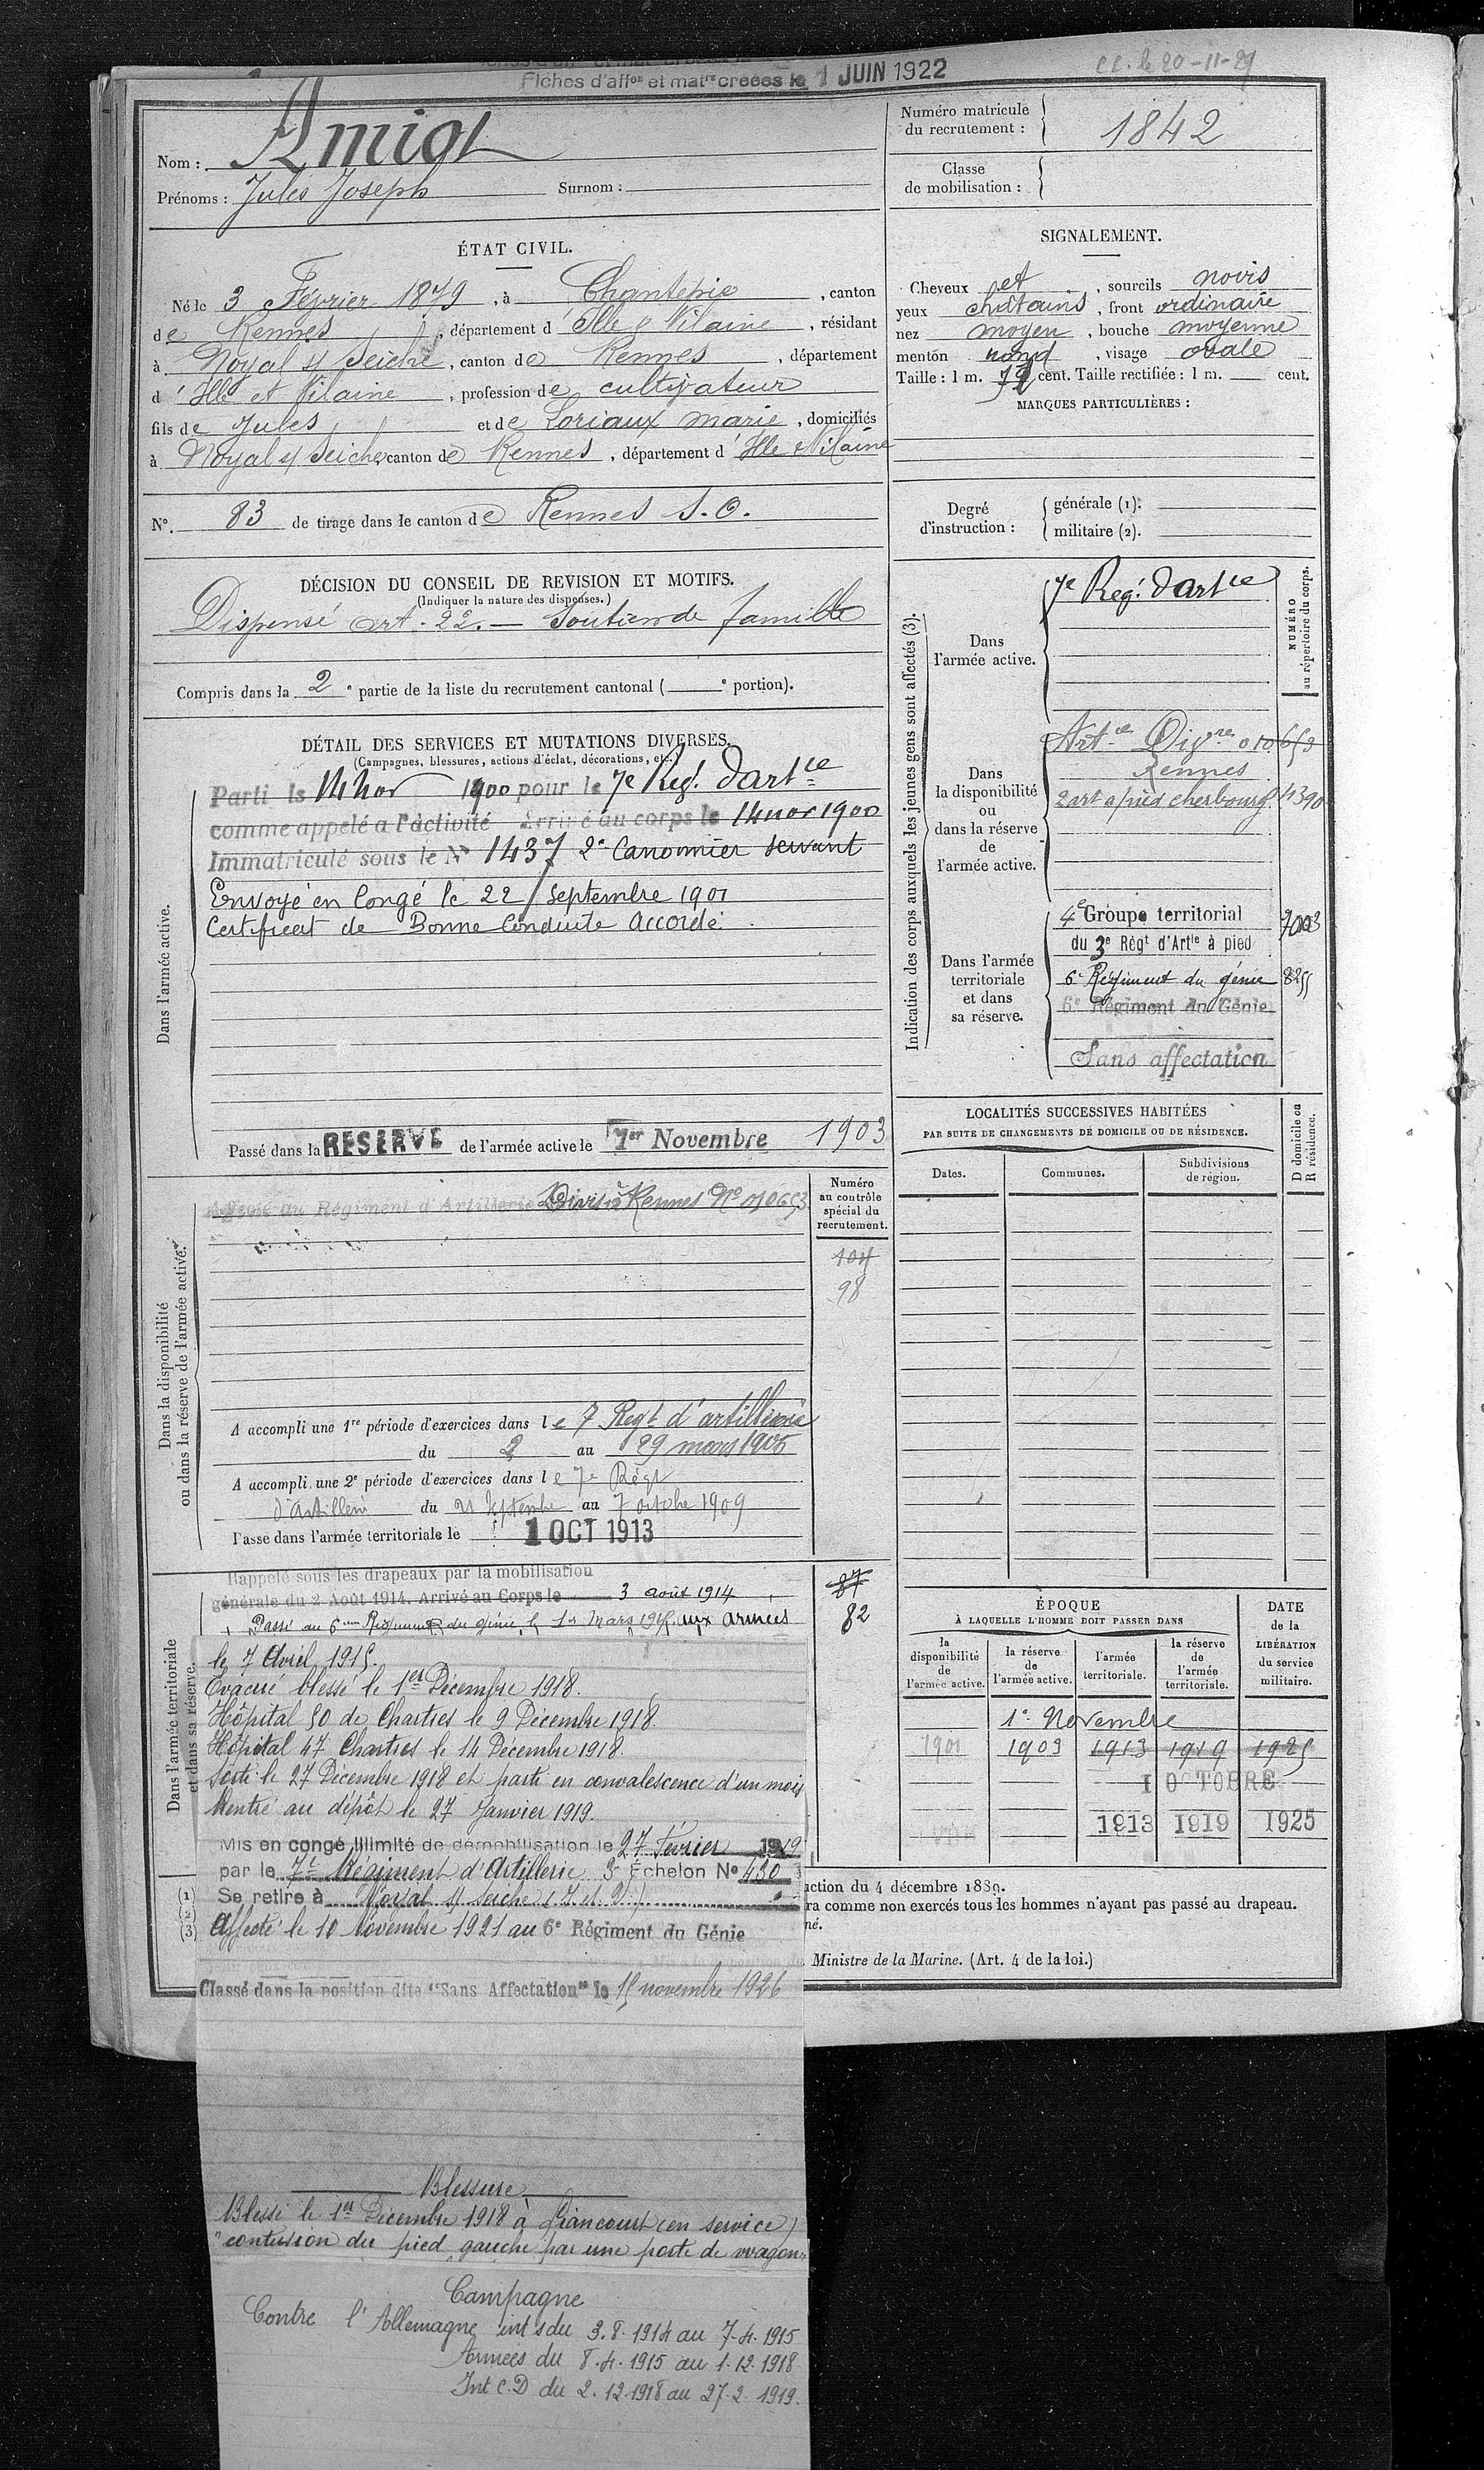 Fiches d'affon et matre créées le 1 JUIN 1922
cc. le 20-11-29
Nom : Amiot
Prénoms : Jules Joseph Surnom :
Numéro matricule du recrutement : 1842
Classe de mobilisation :
ÉTAT CIVIL.
Né le 3 Février 1879, à Chantepie, canton
de Rennes, département d Ille & Vilaine, résidant
à Noyal s/ Seiche, canton de Rennes, département
d'Ille et Vilaine, profession de cultivateur
fils de Jules et de Loriaux Marie, domiciliés
à Noyal s/ Seiche, canton de Rennes, département d'Ille & Vilaine
N°. 83 de tirage dans le canton de Rennes S.O.
SIGNALEMENT.
Cheveux et, sourcils noirs
yeux chatains, front ordinaire
nez moyen, bouche moyenne
menton rond, visage ovale
Taille : 1 m. 72 cent. Taille rectifiée : 1 m. cent.
MARQUES PARTICULIÈRES :
Degré d'instruction :
générale (1).
militaire (2).
DÉCISION DU CONSEIL DE REVISION ET MOTIFS.
(Indiquer la nature des dispenses.)
Dispensé art. 22. — Soutien de famille
Compris dans la 2e partie de la liste du recrutement cantonal ( e portion).
DÉTAIL DES SERVICES ET MUTATIONS DIVERSES.
(Campagnes, blessures, actions d'éclat, décorations, etc.)
Dans l'armée active.
Parti le 14 Nov 1900 pour le 7e Reg. d'artie
comme appelé à l'activité Arrivé au corps le 14 nov 1900
Immatriculé sous le N° 1437 2e Canonnier servant
Envoyé en Congé le 22 Septembre 1901
Certificat de Bonne Conduite Accordé.
Passé dans la RESERVE de l'armée active le 1er Novembre 1903
Indication des corps auxquels les jeunes gens sont affectés (3).
NUMÉRO au répertoire du corps.
Dans l'armée active.
7e Reg. d'artie
Dans la disponibilité ou dans la réserve de l'armée active.
Artie Digre 010653
Rennes
2 art à pied Cherbourg. 4390
Dans l'armée territoriale et dans sa réserve.
4e Groupe territorial
du 3e Régt d'Artie à pied
6e Régiment du génie 8255
6e Régiment du Génie
Sans affectation
Dans la disponibilité ou dans la réserve de l'armée active.
Numéro au contrôle spécial du recrutement.
Affecté au Régiment d'Artillerie Rennes N° 010653
104
98
A accompli une 1re période d'exercices dans le 7 Regt d'artillerie
du 2 au 29 mars 1905
A accompli une 2e période d'exercices dans le 7e Régt
d'Artillerie du 21 Septembre au 7 octobre 1909
Passé dans l'armée territoriale le 1 OCT 1913
LOCALITÉS SUCCESSIVES HABITÉES
PAR SUITE DE CHANGEMENTS DE DOMICILE OU DE RÉSIDENCE.
Dates. Communes. Subdivisions de région.
D domicile ou R résidence.
Dans l'armée territoriale et dans sa réserve.
Rappelé sous les drapeaux par la mobilisation
générale du 2 Août 1914. Arrivé au Corps le 3 août 1914
Passé au 6eme Régiment du génie le 1er Mars 1915. aux armées
87
82
le 7 Avril 1915.
Évacué blessé le 1er Décembre 1918.
Hôpital 50 de Chartres le 9 Décembre 1918.
Hôpital 47 Chartres le 14 Décembre 1918.
Sorti le 27 Décembre 1918 et parti en convalescence d'un mois
Rentré au dépôt le 27 Janvier 1919.
Mis en congé illimité de démobilisation le 27 Février 1919
par le 7e Régiment d'Artillerie 3e Échelon N° 430
Se retire à Noyal s/ Seiche (I. et V.)
Affecté le 10 Novembre 1921 au 6e Régiment du Génie
Classé dans la position dite "Sans Affectation" le 15 novembre 1926
ÉPOQUE
À LAQUELLE L'HOMME DOIT PASSER DANS
la disponibilité de l'armée active.
la réserve de l'armée active.
l'armée territoriale.
la réserve de l'armée territoriale.
DATE de la LIBÉRATION du service militaire.
1er Novembre
1901 1903 1913 1919 1925
1 OCTOBRE
1913 1919 1925
(1)
(2)
(3)
uction du 4 décembre 1889.
ra comme non exercés tous les hommes n'ayant pas passé au drapeau.
né.
Ministre de la Marine. (Art. 4 de la loi.)
Blessure
Blessé le 1er Décembre 1918 à Liancourt (en service)
"contusion du pied gauche par une porte de wagon"
Campagne
Contre l'Allemagne int du 3.8.1914 au 7.4.1915
Armées du 8.4.1915 au 1.12.1918
Int C.D du 2.12.1918 au 27.2.1919.